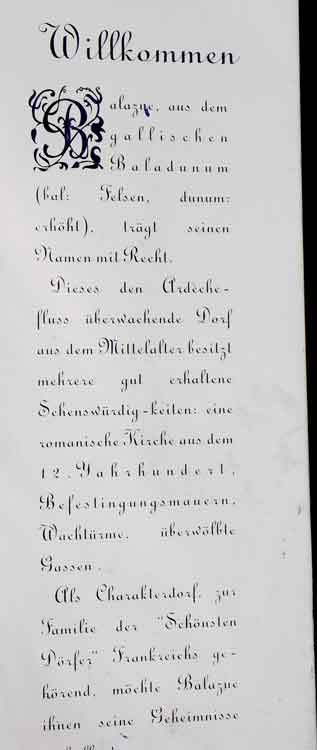 Willkommen
Balazuc, aus dem
gallischen
Baladunum
(bal: Felsen, dunum:
erhöht), trägt seinen
Namen mit Recht.
Dieses den Ardeche-
fluss überwachende Dorf
aus dem Mittelalter besitzt
mehrere gut erhaltene
Sehenswürdig-keiten: eine
romanische Kirche aus dem
12. Jahrhundert,
Befestingungsmauern,
Wachtürme, überwölbte
Gassen.
Als Charakterdorf, zur
Familie der "Schönsten
Dörfer" Frankreichs ge-
hörend, möchte Balazuc
ihnen seine Geheimnisse